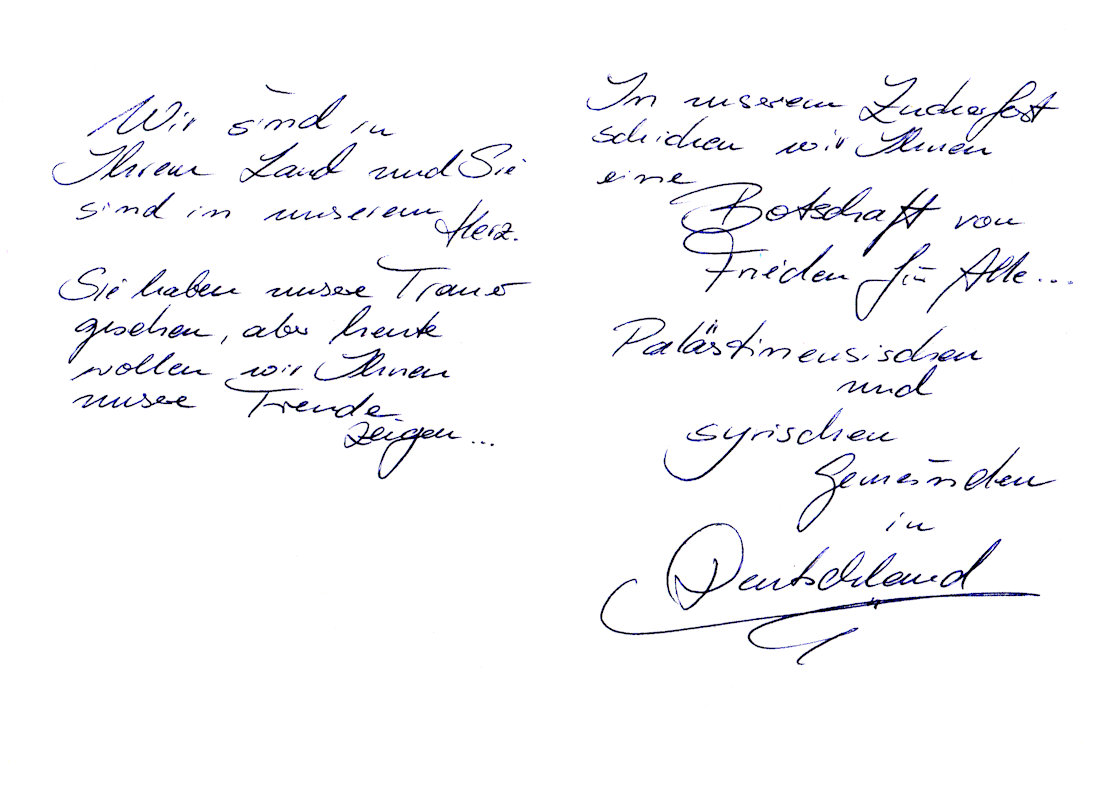 Wir sind in
Ihrem Land und Sie
sind in unserem
Herz.
Sie haben unsere Trauer
gesehen, aber heute
wollen wir Ihnen
unsere Freude
zeigen...
In unserem Zuckerfest
schicken wir Ihnen
eine
Botschaft von
Frieden für Alle...
Palästinensischen
und
syrischen
Gemeinden
in
Deutschland